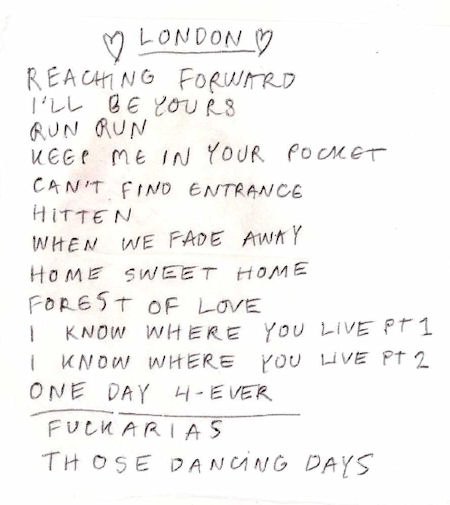 ♡ LONDON ♡
REACHING FORWARD
I'LL BE YOURS
RUN RUN
KEEP ME IN YOUR POCKET
CAN'T FIND ENTRANCE
HITTEN
WHEN WE FADE AWAY
HOME SWEET HOME
FOREST OF LOVE
I KNOW WHERE YOU LIVE PT 1
I KNOW WHERE YOU LIVE PT 2
ONE DAY 4-EVER
FUCKARIAS
THOSE DANCING DAYS